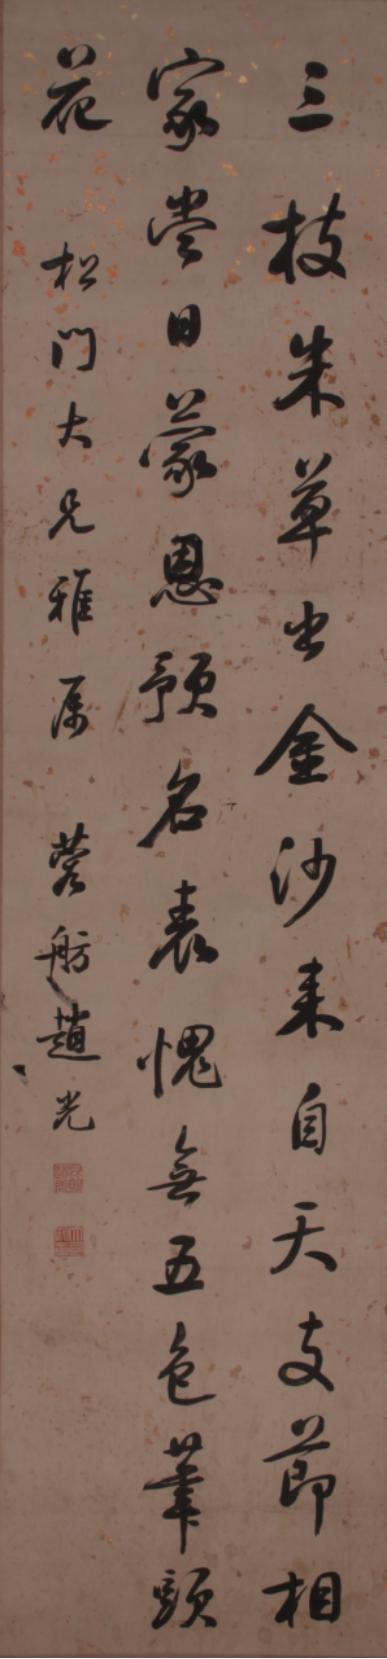 三枝朱草出金沙来自天支節相
家當日蒙恩預名表愧無五色筆頭
花 松門大兄雅属 蓉舫趙光